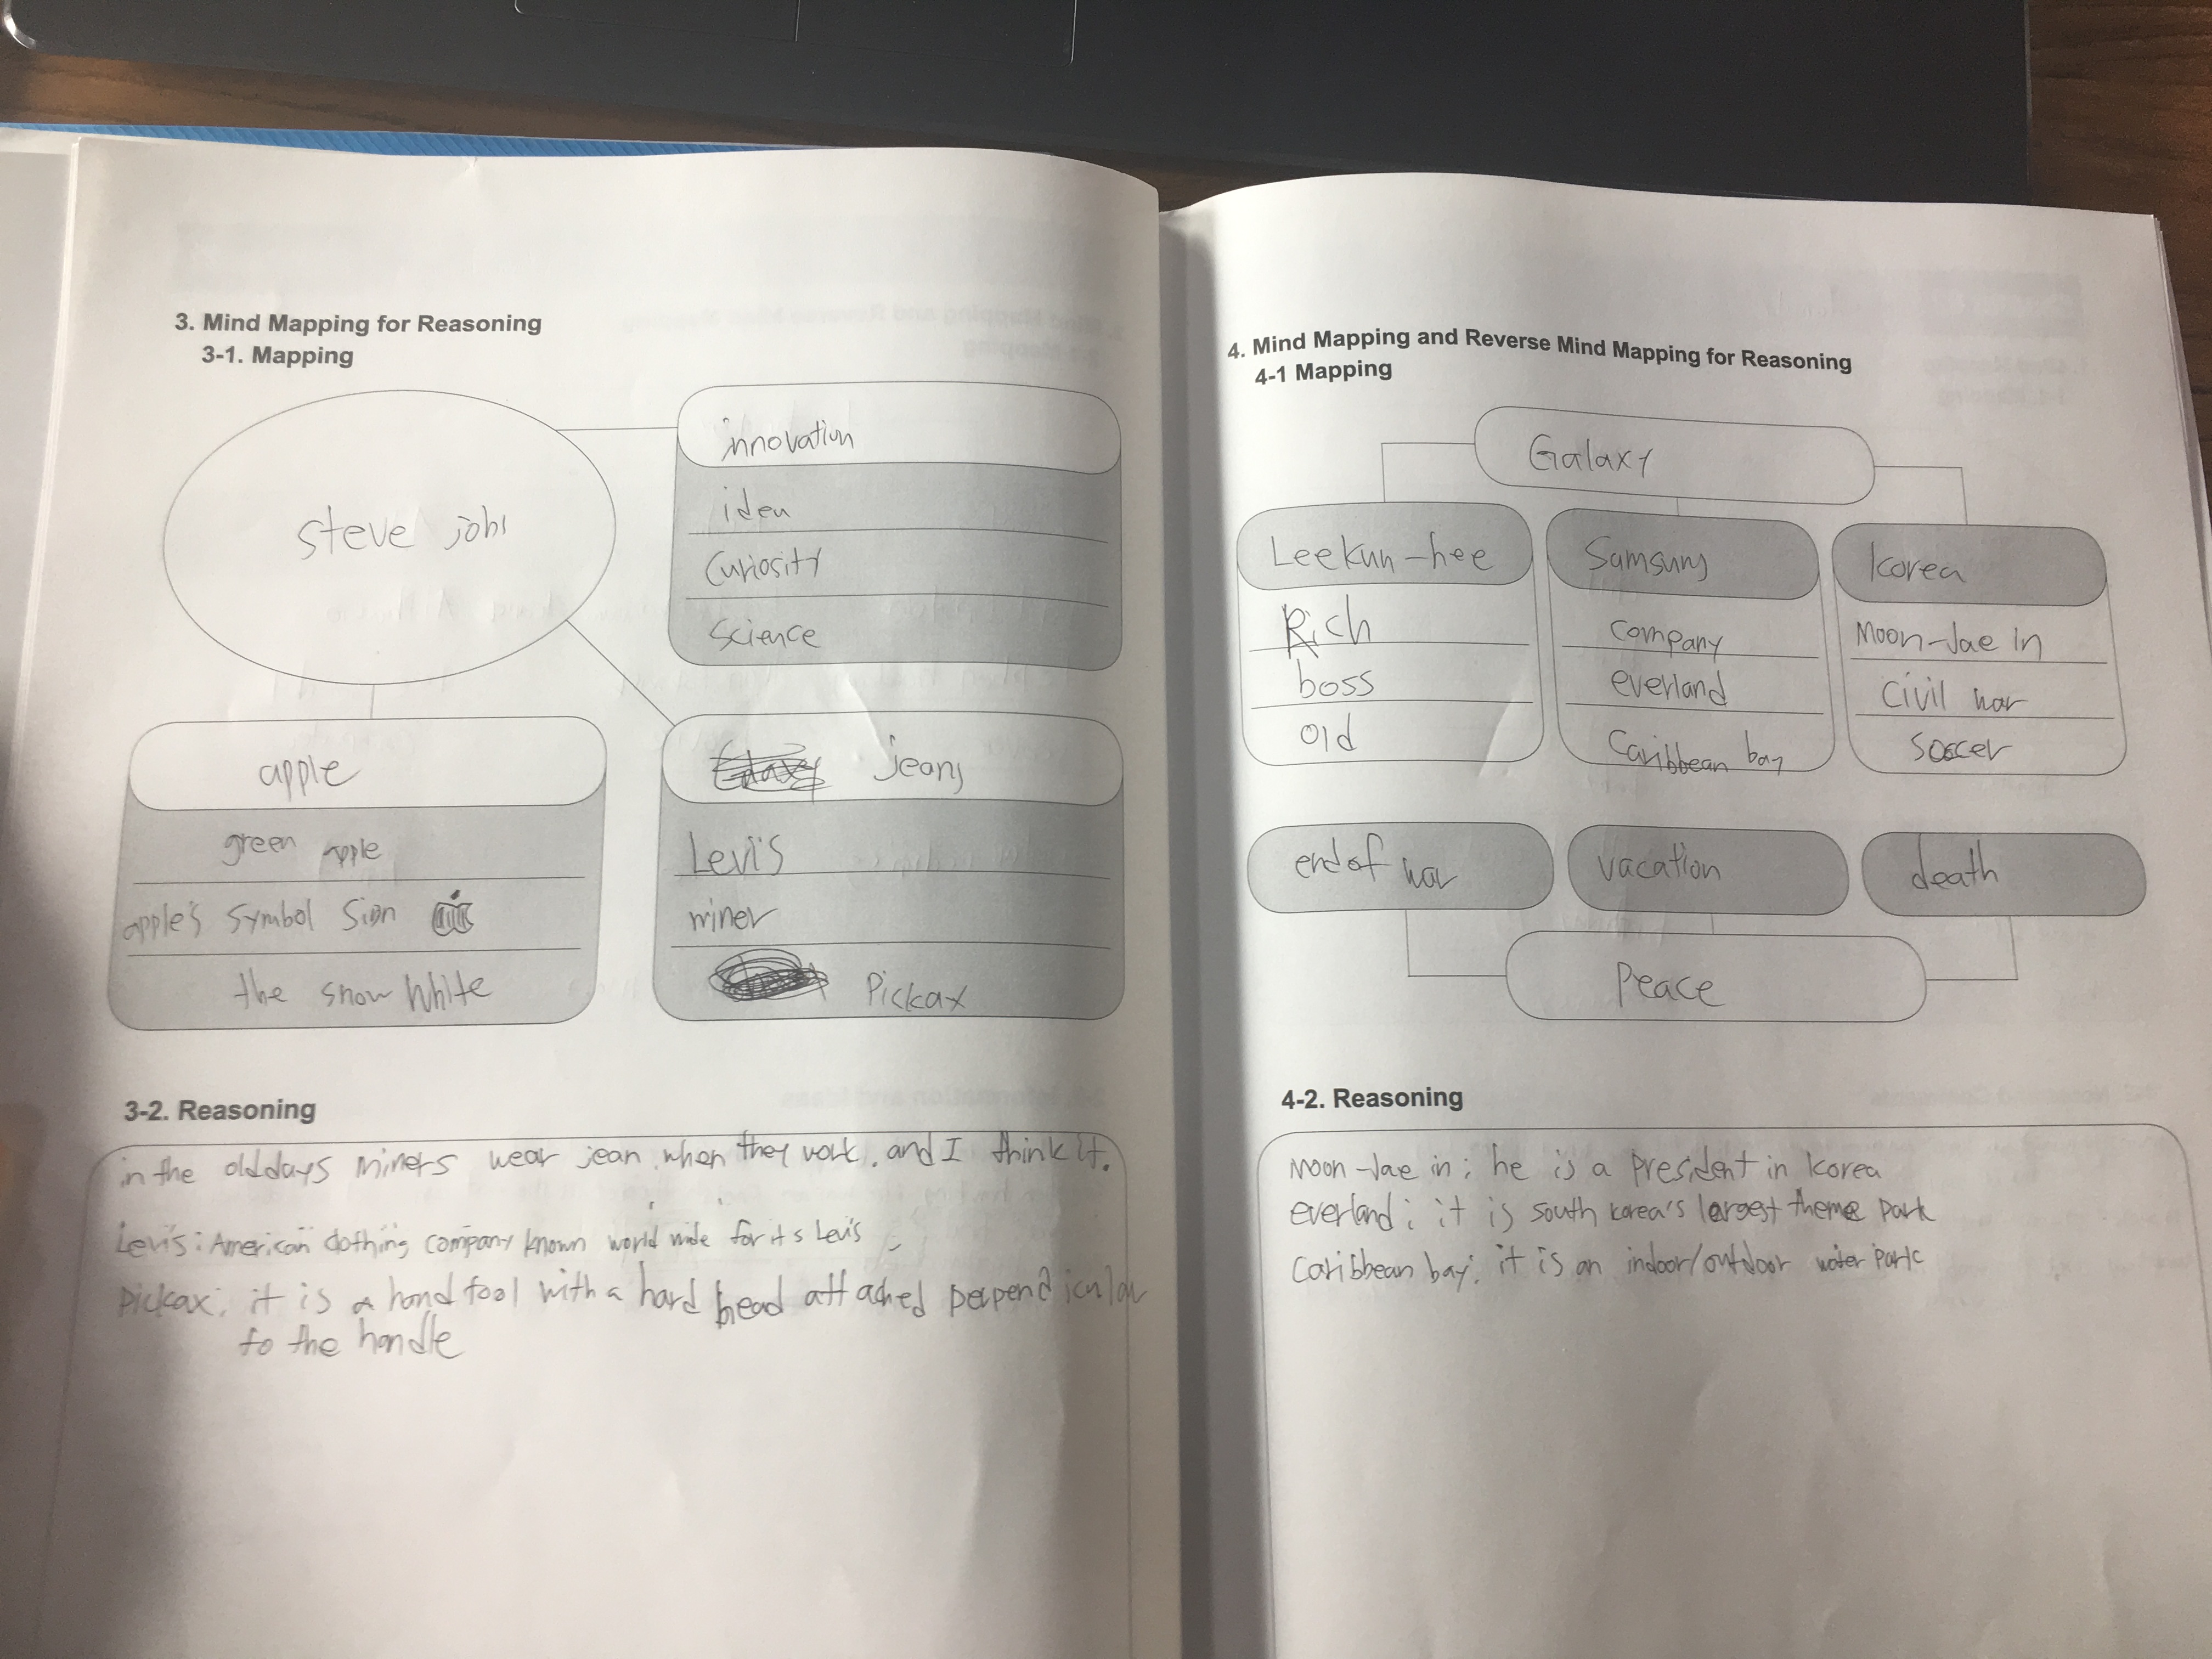 3. Mind Mapping for Reasoning
3-1. Mapping
steve jobs
innovation
idea
Curiosity
Science
apple
green apple
apple's Symbol Sign
the snow White
jeans
Levi's
miner
Pickax
3-2. Reasoning
in the old days miners wear jean when they work. and I think it.
Levi's: American clothing company known world wide for it s Levis
Pickax: it is a hand tool with a hard head attached perpendicular
to the handle
4. Mind Mapping and Reverse Mind Mapping for Reasoning
4-1 Mapping
Galaxy
Lee kun-hee
Rich
boss
old
Samsung
company
everland
Caribbean bay
Korea
Moon-Jae in
Civil war
soccer
end of war
vacation
death
Peace
4-2. Reasoning
Moon-Jae in: he is a President in korea
everland: it is south korea's largest theme park
Caribbean bay: it is an indoor/outdoor water park